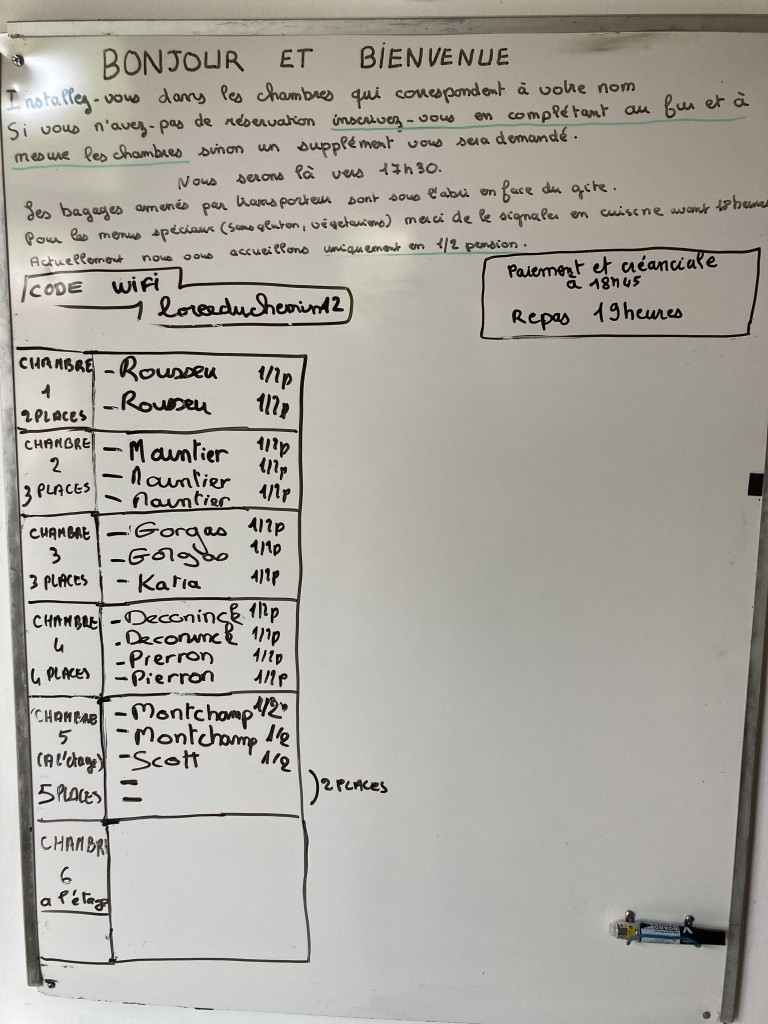 BONJOUR ET BIENVENUE
Installez-vous dans les chambres qui correspondent à votre nom
Si vous n'avez-pas de réservation inscrivez-vous en complétant au fur et à
mesure les chambres sinon un supplément vous sera demandé.
Nous serons là vers 17h30.
Les bagages amenés par transporteur sont sous l'abri en face du gîte.
Pour les menus spéciaux (sans gluten, végétariens) merci de le signaler en cuisine avant 18heures
Actuellement nous vous accueillons uniquement en 1/2 pension.
CODE WIFI
loreeduchemin12
Paiement et créanciale
à 18H45
Repas 19heures
CHAMBRE
1
2 PLACES
- Rousseu 1/2p
- Rousseu 1/2p
CHAMBRE
2
3 PLACES
- Mauntier 1/2p
- Mauntier 1/2p
- Mauntier 1/2p
CHAMBRE
3
3 PLACES
- Gorgas 1/2p
- Gorgas 1/2p
- Katia 1/2p
CHAMBRE
4
4 PLACES
- Deconinck 1/2p
- Deconinck 1/2p
- Pierron 1/2p
- Pierron 1/2p
CHAMBRE
5
(A l'étage)
5 PLACES
- Montchamp 1/2p
- Montchamp 1/2
- Scott 1/2
-
-
2 PLACES
CHAMBR
6
a l'étage